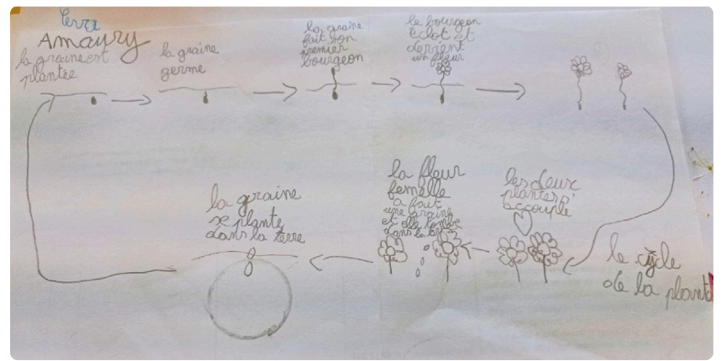 Terra
Amaury
la graine est
plantée
la graine
germe
la graine
fait son
premier
bourgeon
le bourgeon
éclot et
devient
un fleur
les deux
plantes s'
accouple
la fleur
femelle
a fait
une graine
et elle tombe
dans la
la graine
se plante
dans la terre
le cycle
de la plante